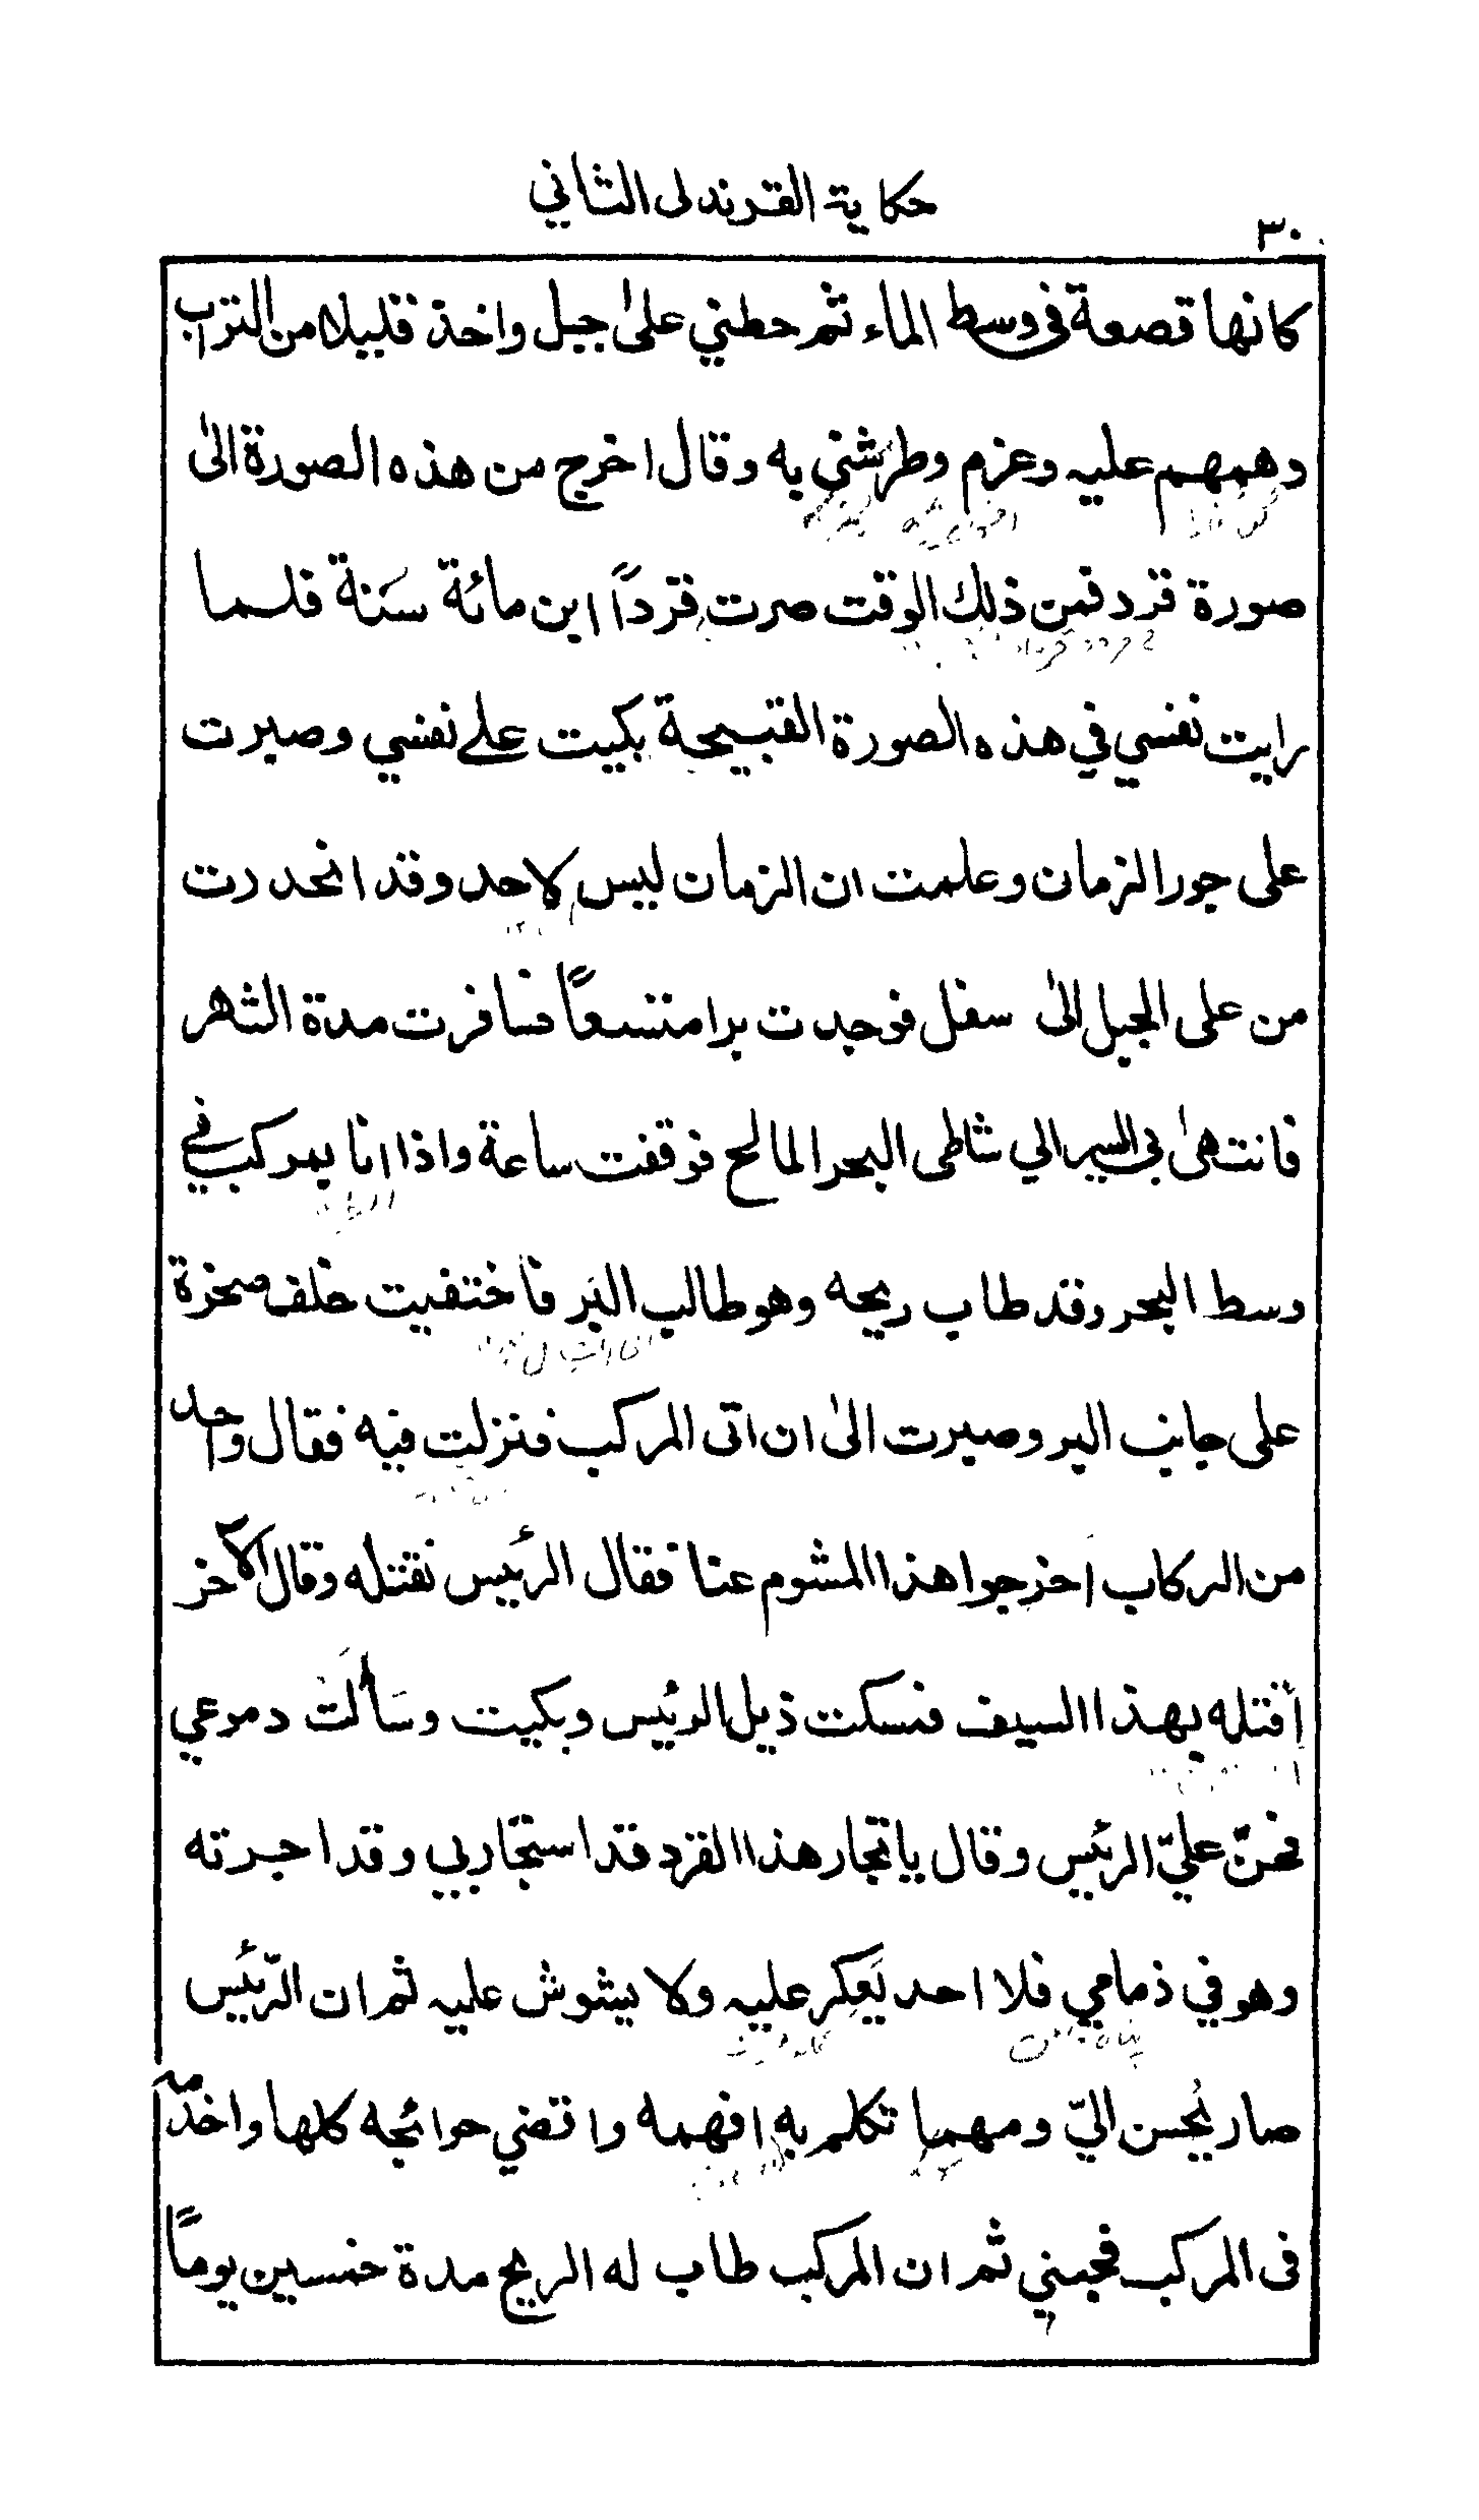 حكاية القرندلى الثاني
٣٠
كانها قصعة فى وسط الماء ثم حطني على جبل واخذ قليلا من التراب
وهمهم عليه وعزم وطرشني به وقال اخرج من هذه الصورة الى
صورة قرد فمن ذلك الوقت صرت قرداً ابن مائة سنة فلسما
رايت نفسي في هذه الصورة القبيحة بكيت على نفسي وصبرت
على جور الزمان وعلمت ان الزمان ليس لاحد وقد انحدرت
من على الجبل الى سفل فوجدت برا متسعاً فسافرت مدة الشهر
فانتهى بي السير الي شاطى البحر المالح فوقفت ساعة واذا انا بمركب في
وسط البحر وقد طاب ريحه وهو طالب البر فاختفيت خلف صخرة
على جانب البر وصبرت الى ان اتى المركب فنزلت فيه فقال واحد
من الركاب أخرجوا هذا المشوم عنا فقال الرئيس نقتله وقال الآخر
أقتله بهذا السيف فمسكت ذيل الرئيس وبكيت وسَألَتْ دموعي
فحنّ عليّ الرئيس وقال يا تجار هذا القرد قد استجاربي وقد اجرته
وهو في ذمامي فلا احد يَعكر عليه ولا يشوش عليه ثم ان الرّئيس
صار يُحسن اليّ ومهما تكلم به افهمه واقضي حوائجه كلها واخدمه
فى المركب فحبني ثم ان المركب طاب له الريح مدة خمسين يوماً